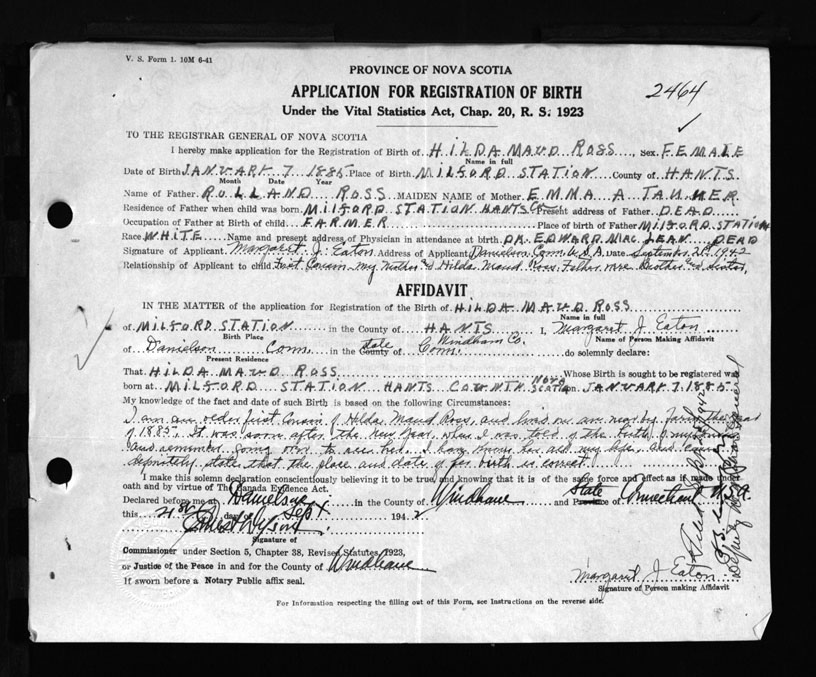 V. S. Form 1. 10M 6-41
PROVINCE OF NOVA SCOTIA
APPLICATION FOR REGISTRATION OF BIRTH
2464
Under the Vital Statistics Act, Chap. 20, R. S. 1923
TO THE REGISTRAR GENERAL OF NOVA SCOTIA
I hereby make application for the Registration of Birth of HILDA MAUD ROSS, Sex FEMALE
Name in full
Date of Birth JANUARY 7 1885 Place of Birth MILFORD STATION County of HANTS
Month Date Year
Name of Father ROLLAND ROSS MAIDEN NAME of Mother EMMA A TANNER
Residence of Father when child was born MILFORD STATION HANTS Co Present address of Father DEAD
Occupation of Father at Birth of child FARMER Place of birth of Father MILFORD STATION
Race WHITE Name and present address of Physician in attendance at birth DR. EDWARD MACLEAN DEAD
Signature of Applicant Margaret J. Eaton Address of Applicant Danielson Conn. U.S.A. Date September 21st 1942
Relationship of Applicant to child First Cousin - my Mother & Hilda Maud Ross' Father were Brother and Sister
AFFIDAVIT
IN THE MATTER of the application for Registration of the Birth of HILDA MAUD ROSS
Name in full
of MILFORD STATION in the County of HANTS I, Margaret J. Eaton
Birth Place Name of Person Making Affidavit
of Danielson Conn. in the State County of Windham Co. Conn. do solemnly declare:
Present Residence
That HILDA MAUD ROSS Whose Birth is sought to be registered was
born at MILFORD STATION HANTS COUNTY NOVA SCOTIA on JANUARY 7, 1885.
My knowledge of the fact and date of such Birth is based on the following Circumstances:
I am an older first Cousin of Hilda Maud Ross, and lived on a nearby farm the year
of 1885. It was soon after the New Year, when I was told of the birth of my cousin
and remember going over to see her. I have known her all my life, and can
definitely state that the place and date of her birth is correct.
I make this solemn declaration conscientiously believing it to be true, and knowing that it is of the same force and effect as if made under
oath and by virtue of The Canada Evidence Act.
Declared before me at Danielson in the County of Windham and State Province of Connecticut U.S.A.
this 21st day of Sept 1942
Signature of
Commissioner under Section 5, Chapter 38, Revised Statutes, 1923,
or Justice of the Peace in and for the County of Windham
If sworn before a Notary Public affix seal.
Margaret J. Eaton
Signature of Person making Affidavit
For Information respecting the filling out of this Form, see Instructions on the reverse side.
Deputy Registrar General